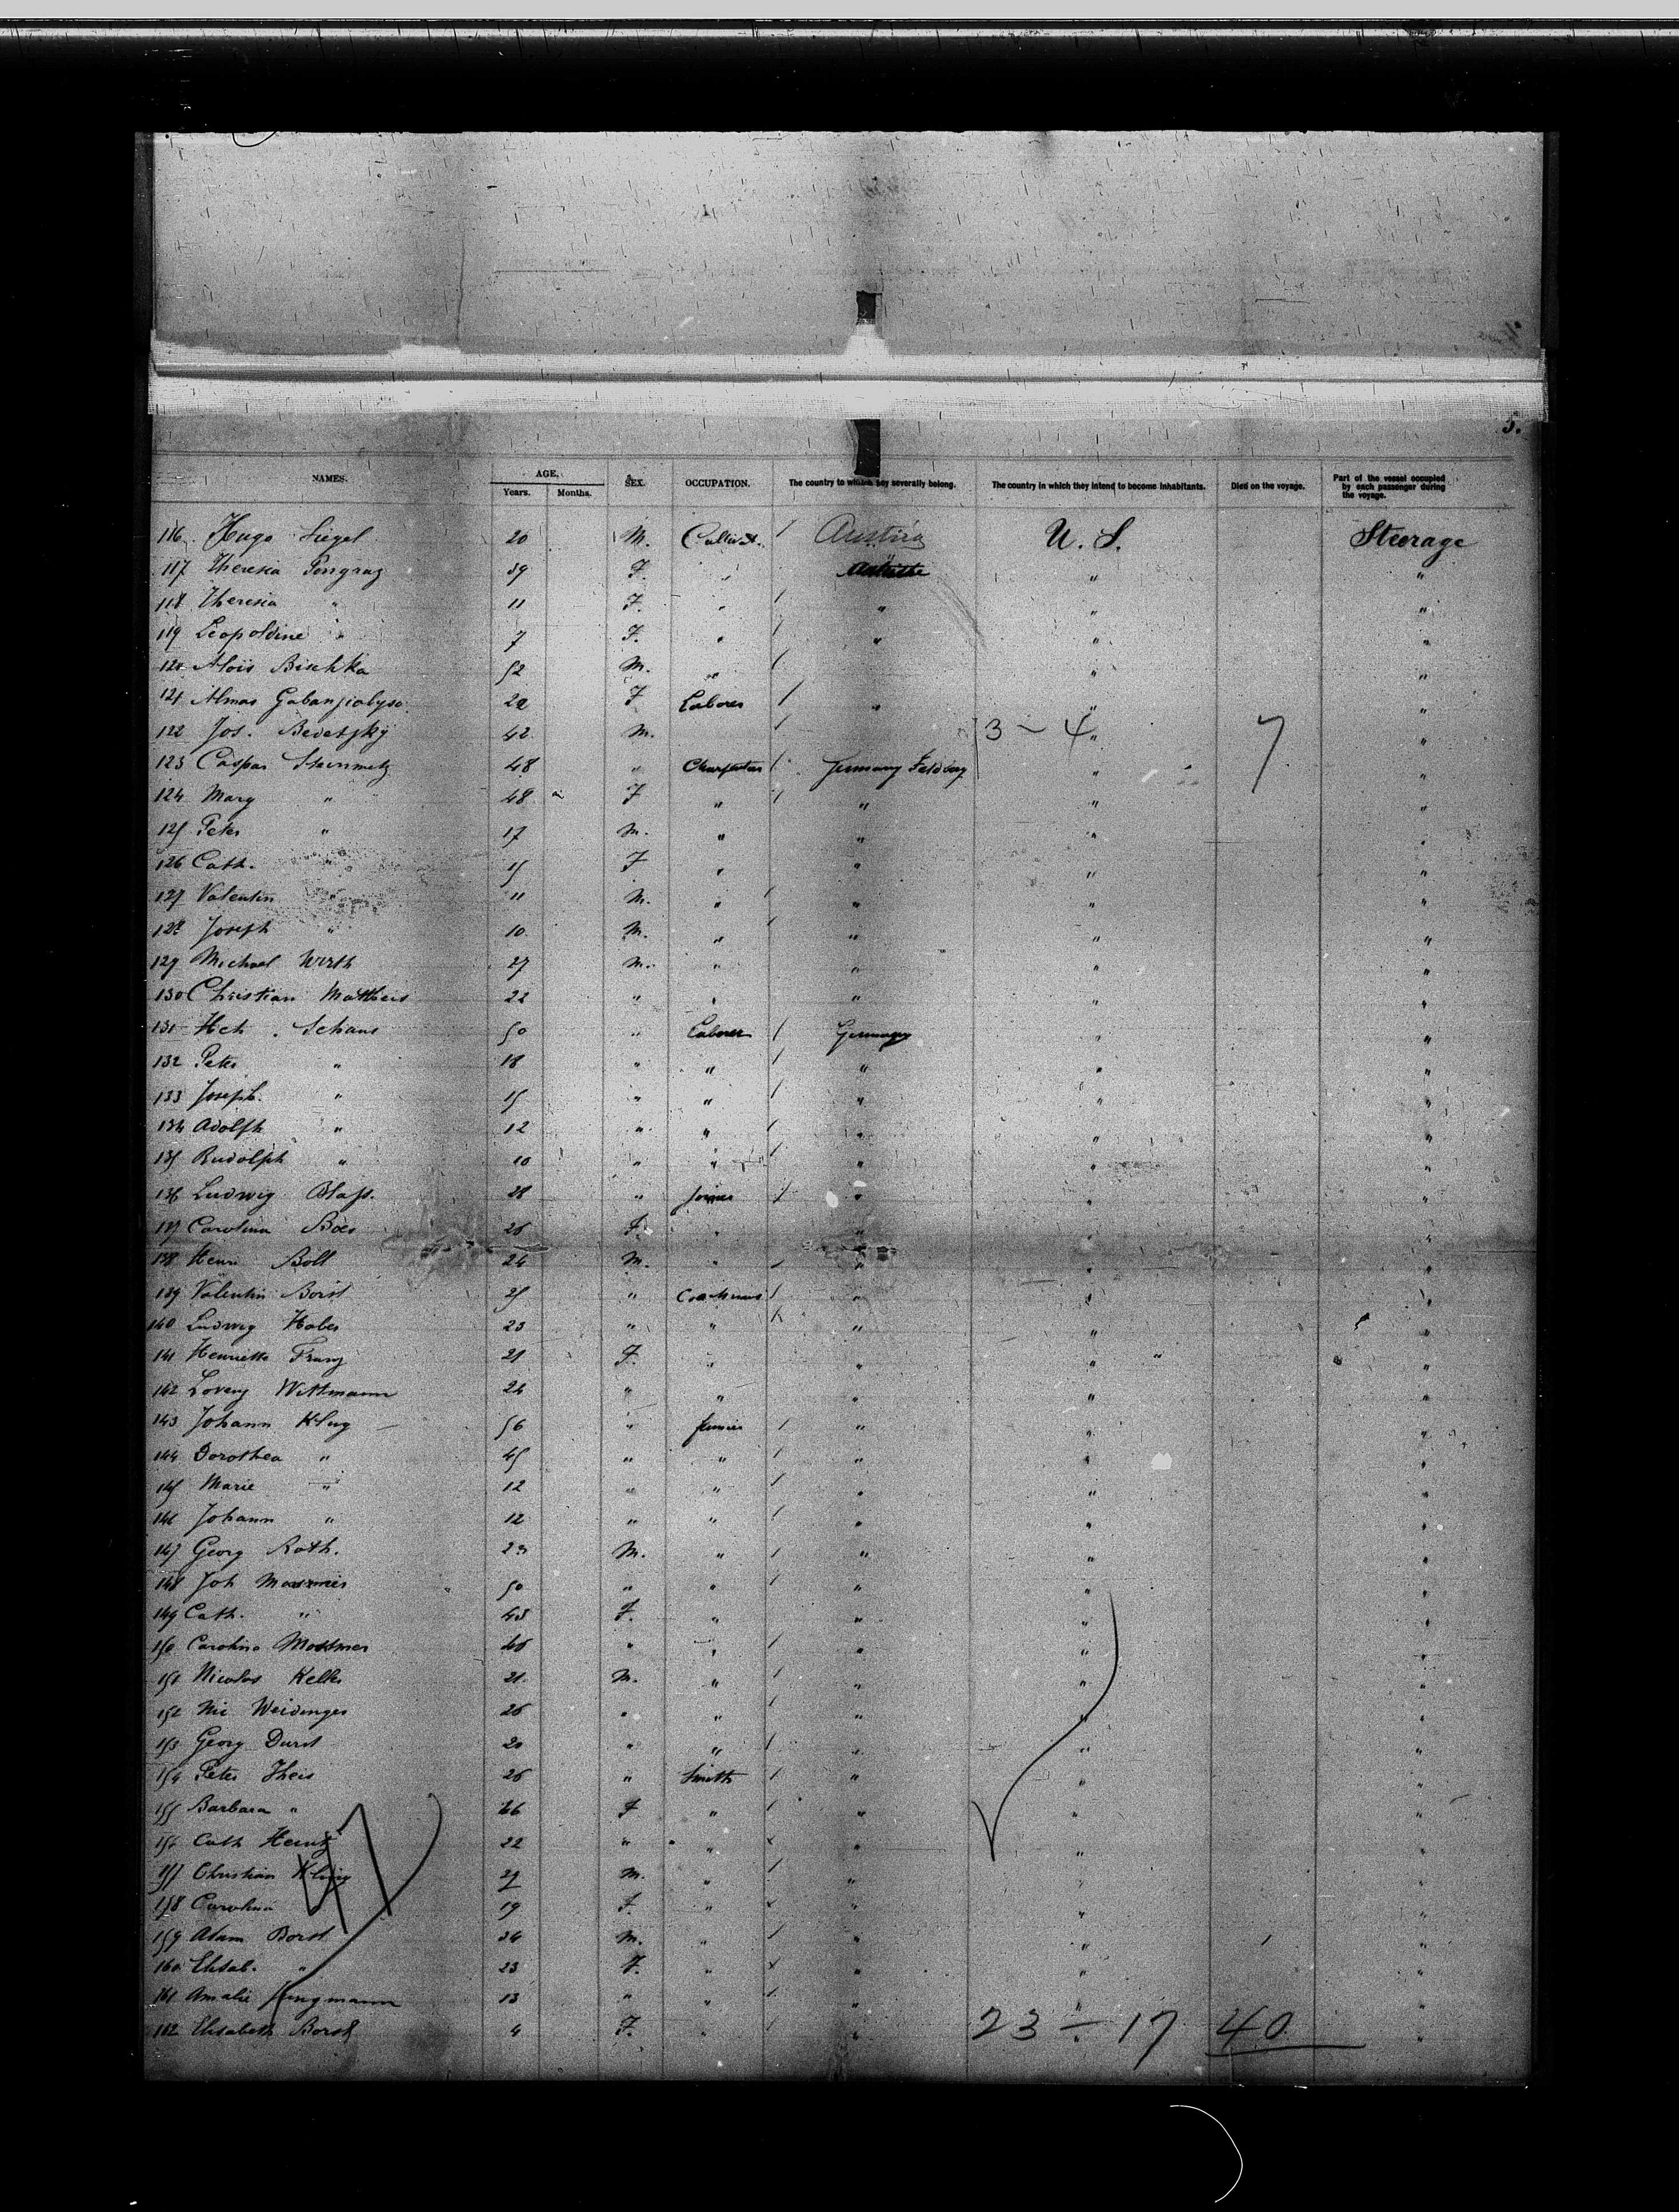 5.
NAMES. AGE. Years. Months. SEX. OCCUPATION. The country to which they severally belong. The country in which they intend to become inhabitants. Died on the voyage. Part of the vessel occupied by each passenger during the voyage.
116. Hugo Siegel 20 M. / Austria U. S. Steerage
117 Theresia 39 F. " "
118 Theresia " 11 F. " / " " "
119 Leopoldine " 7 F. " / " " "
120 Alois Bischka 52 M. " / " "
121 22 F Laborer / " " "
122 Jos. Bedetzky 42 M. / 3 – 4 " 7 "
123 Caspar Steinmetz 48 " / Germany " "
124 Mary " 48 F " / " " "
125 Peter " 17 M. " " " "
126 Cath. " 15 F " " " "
127 Valentin " 11 M. " / " " "
128 Joseph " 10 M. " / " " "
129 Michael Wirth 27 M. " " " "
130 Christian Mattheis 22 " " " " "
131 Hch. Schaus 50 " Laborer / Germany " "
132 Peter " 18 " " / " " "
133 Joseph. " 15 " " / " " "
134 Adolph " 12 " " / " " "
135 Rudolph " 10 " " / " " "
136 Ludwig 28 " Joiner / " " "
137 Carolina Boes 26 F. " " " "
138 Henri Böll 24 M. " / " " "
139 Valentin Borst 25 " / " " "
140 Ludwig Haber 23 " " " " "
141 Henriette Franz 21 F. " " " "
142 Wittmann 24 " " " " "
143 Johann Klug 56 " / " " "
144 Dorothea " 45 " " / " " "
145 Marie " 12 " " / " " "
146 Johann " 12 " " / " " "
147 Georg Roth. 23 M. " / " " "
148 Joh 50 " " / " " "
149 Cath. " 43 F. " " " "
150 Carolina " " / " " "
151 Nicolas Keller 21 M. " / " " "
152 Nic Weidinger 26 " " / " " "
153 Georg Durst 20 " " / " " "
154 Peter Theis 26 " Smith / " " "
155 Barbara " F " / " " "
156 Cath Heintz 22 " " × " " "
157 Christian Klug 27 M. " / " " "
158 Carolina " 19 F. " × " " "
159 Adam Borst 24 M. " / " " "
160 Elisab. " 23 F. " × " " "
161 Amalie Jungmann 13 " " / " " "
162 Elisabeth Borst 4 F. " / " 23 – 17 40 "
47